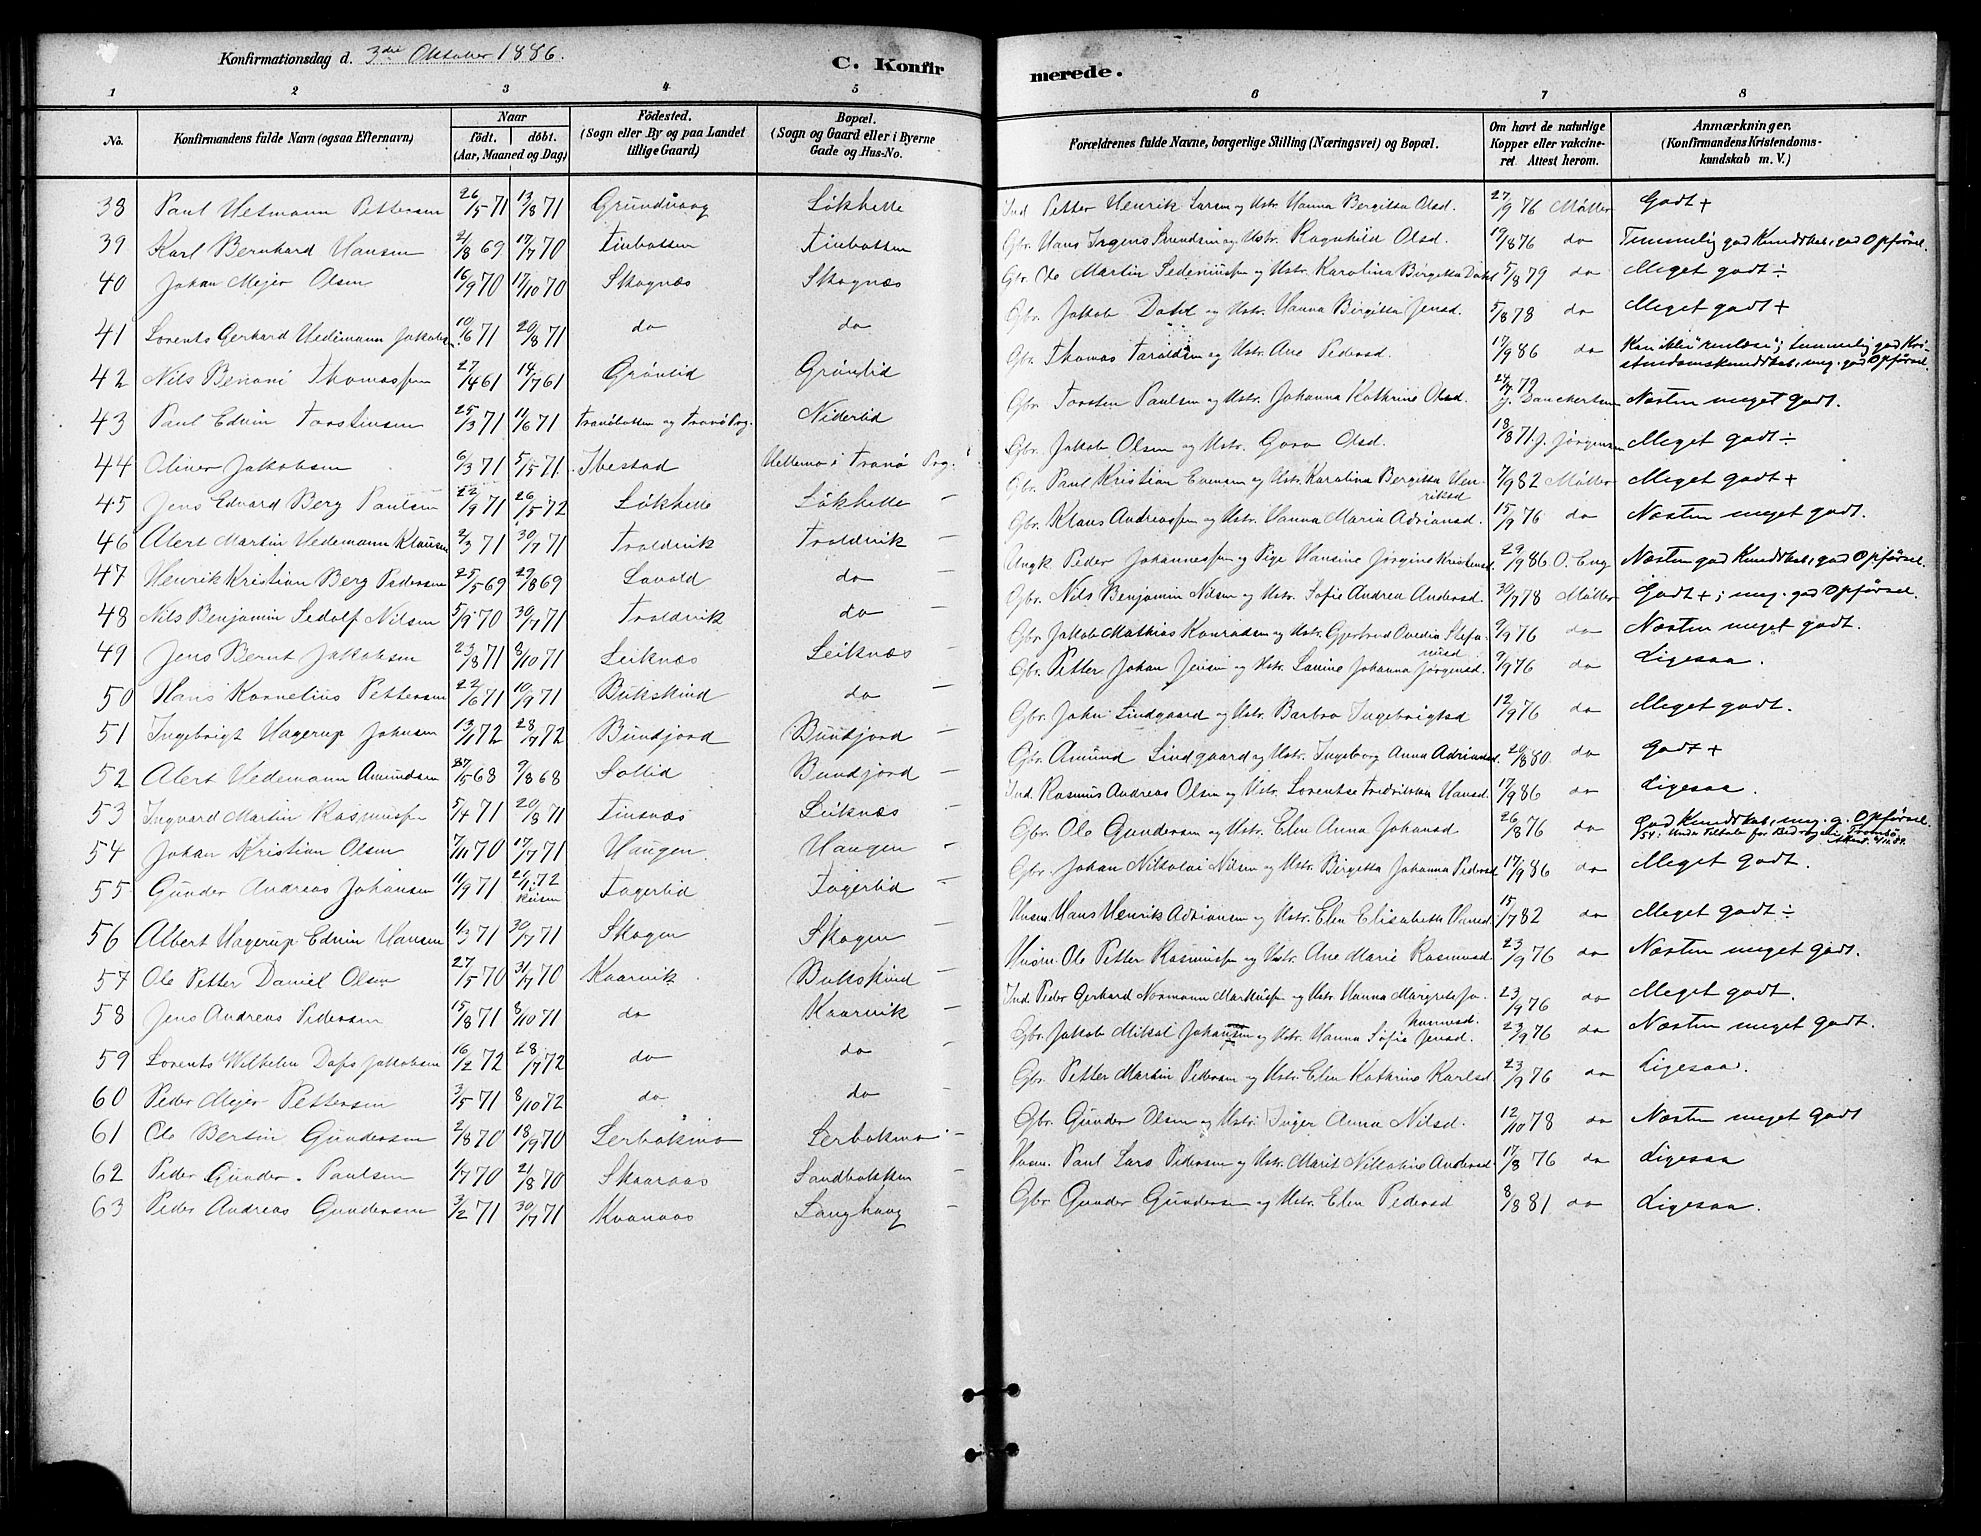 Konfirmationsdag d. 3die Oktober 1886. C. Konfirmerede.
1 2 3 4 5 6 7 8
No. Konfirmandens fulde Navn (ogsaa Efternavn) Naar födt. döbt. (Aar, Maaned og Dag) Födested. (Sogn eller By og paa Landet tillige Gaard) Bopæl. (Sogn og Gaard eller i Byerne Gade og Hus-No. Forældrenes fulde Navne, borgerlige Stilling (Næringsvei) og Bopæl. Om havt de naturlige Kopper eller vakcineret Attest herom. Anmærkninger. (Konfirmandens Kristendomskundskab m. V.)
38 Paul Hetmann Pettersen 26/5 71 13/8 71 Grundvaag Løkhelle Ind. Petter Henrik Larsen og Hstr. Hanna Bergitta Olsd. 27/9 76 Møller Godt +
39 Karl Bernhard Hansen 21/8 69 17/7 70 Finbotten Finbotten Gbr. Hans Irgens og Hstr. Ragnhild Olsd. 19/8 76 do Temmelig god Kundskab, god Opførsel.
40 Johan Mejer Olsen 16/9 70 17/10 70 Skognæs Skognæs Gbr. Ole Martin Sedeniussen og Hstr. Karolina Birgitta Dahl 5/8 79 do Meget godt ÷
41 Lorents Gerhard Hedemann Jakobsen 10/6 71 20/8 71 do do Gbr. Jakob Dahl og Hstr. Hanna Birgitta Jensd. 5/8 78 do Meget godt +
42 Nils Benoni Thomassen 27/4 61 14/7 61 Grönlid Grönlid Gbr. Thomas Taraldsen og Hstr. Ane Pedersd. 17/9 86 do Kan ikke "renlæse"; temmelig god Kristendomskundskab, meg. god Opførsel.
43 Paul Edvin Torstensen 25/3 71 11/6 71 Tranöbotten og Tranö Prg. Niderlid Gbr. Torsten Paulsen og Hstr. Johanna Kathrine Olsd. 72 J. Banckertsen Næsten meget godt.
44 Oliver Jakobsen 6/3 71 5/5 71 Ibestad Hellemo i Tranö Prg. Gbr. Jakob Olsen og Hstr. Goro Olsd. 18/8 71 J. Jörgensen Meget godt ÷
45 Jens Edvard Berg Paulsen 22/9 71 26/5 72 Løkhelle Løkhelle — Gbr. Paul Kristian Evensen og Hstr. Karolina Bergitta Henriksd 7/9 82 Møller Meget godt +
46 Alert Martin Hedemann Klausen 2/3 71 30/7 71 Troldvik Troldvik — Gbr. Klaus Andreassen og Hstr. Hanna Maria Adriansd. 15/9 76 do Næsten meget godt.
47 Henrik Kristian Berg Pedersen 25/5 69 29/8 69 Lavold do — Ungk Peder Johannessen og Pige Hansine Jørgine Kristensd. 29/9 86 O. Eng Næsten god Kundskab, god Opførsel.
48 Nils Benjamin Sedolf Nilsen 5/9 70 30/7 71 Troldvik do — Gbr. Nils Benjamin Nilsen og Hstr. Sofie Andrea Andersd. 30/7 78 Møller Godt +; meg. god Opførsel.
49 Jens Bernt Jakobsen 23/8 71 8/10 71 Leiknæs Leiknæs — Gbr. Jakob Mathias Konradsen og Hstr. Gjertrud Ovedia Stefanusd 9/9 76 do Næsten meget godt.
50 Hans Kornelius Pettersen 22/6 71 10/9 71 Bukskind do — Gbr. Petter Johan Jensen og Hstr. Lavine Johanna Jørgensd. 9/9 76 do Ligesaa.
51 Ingebrigt Hagerup Johnsen 13/1 72 28/7 72 Bundjord Bundjord — Gbr. John Lindgaard og Hstr. Barbro Ingebrigtsd 12/9 76 do Meget godt.
52 Alert Hedemann Amundsen 27/5 68 9/8 68 Sollid Bundjord — Gbr. Amund Lindgaard og Hstr. Ingeborg Anna Adriansd. 20/8 80. do Godt +
53 Ingvard Martin Rasmussen 5/4 71 20/8 71 Finsnæs Leiknæs — Ind. Rasmus Andreas Olsen og Hstr. Lorentse Fredrikka Hansd. 17/9 86 do Ligesaa.
54 Johan Kristian Olsen 7/11 70 17/7 71 Haugen. Haugen — Gbr. Ole Gundersen og Hstr. Elen Anna Johansd 26/8 76 do God Kundskab, meg. g. Opførsel.
54: Under Tiltale for Bedrageri, Tromsø
55 Gunder Andreas Johansen 11/9 71 21/1 72 Fagerlid Fagerlid — Gbr. Johan Nikolai Nilsen og Hstr. Birgitta Johanna Pedersd 17/9 86 do Meget godt.
56 Albert Hagerup Edvin Hansen 1/3 71 30/7 71 Skogen Skogen — Husm. Hans Henrik Adriansen og Hstr. Elen Elisabeth Hansd 15/7 82 do Meget godt ÷
57 Ole Petter Daniel Olsen 27/5 70 31/7 70 Kaarvik Bukskind — Husm. Ole Petter Rasmussen og Hstr. Ane Marie Rasmusd 23/9 76 do Næsten meget godt.
58 Jens Andreas Pedersen 15/8 71 8/10 71 do Kaarvik — Ind. Peder Gerhard Normann Markussen og Hstr. Hanna Margrete Johannesd. 23/9 76 do Meget godt.
59 Lorents Wilhelm Dass Jakobsen 16/2 72 28/7 72 do do — Gbr. Jakob Mikal Johansen og Hstr. Hanna Sofie Jensd. 23/9 76 do Næsten meget godt.
60 Peder Mejer Pettersen 3/5 71 8/10 72 do do — Gbr. Petter Martin Pedersen og Hstr. Elen Kathrine Karlsd. 23/9 76 do Ligesaa.
61 Ole Bersvin Gundersen 2/8 70 18/9 70 Lerbakmo Lerbakmo — Gbr. Gunder Olsen og Hstr. Inger Anna Nilsd. 12/10 78 do Næsten meget godt
62 Peder Gunder Paulsen 1/7 70 21/8 70 Skaaraas Sandbakken — Husm. Paul Lars Pedersen og Hstr. Marit Nikoline Andersd. 17/8 76 do Ligesaa
63 Peder Andreas Gundersen 3/2 71 30/7 71 Kvanaas Langhaug — Gbr. Gunder Gundersen og Hstr. Elen Pedersd 8/8 81 do Ligesaa.